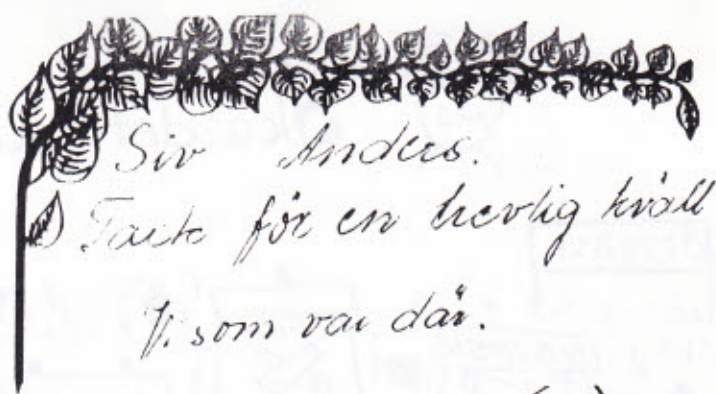 Siv Anders.
Tack för en trevlig kväll
Vi som var där.